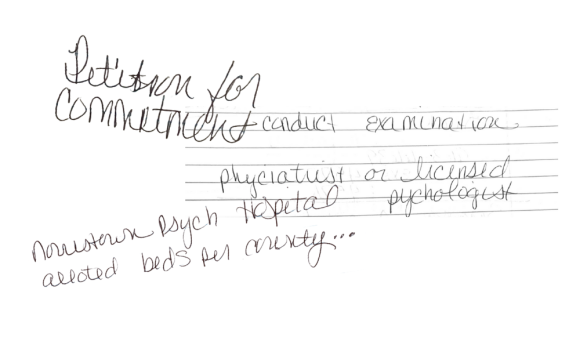 Petition for
commetment conduct examination.
phyciatrist or licensed
pychologist
Norristown Psych Hospetal
alloted beds per county...